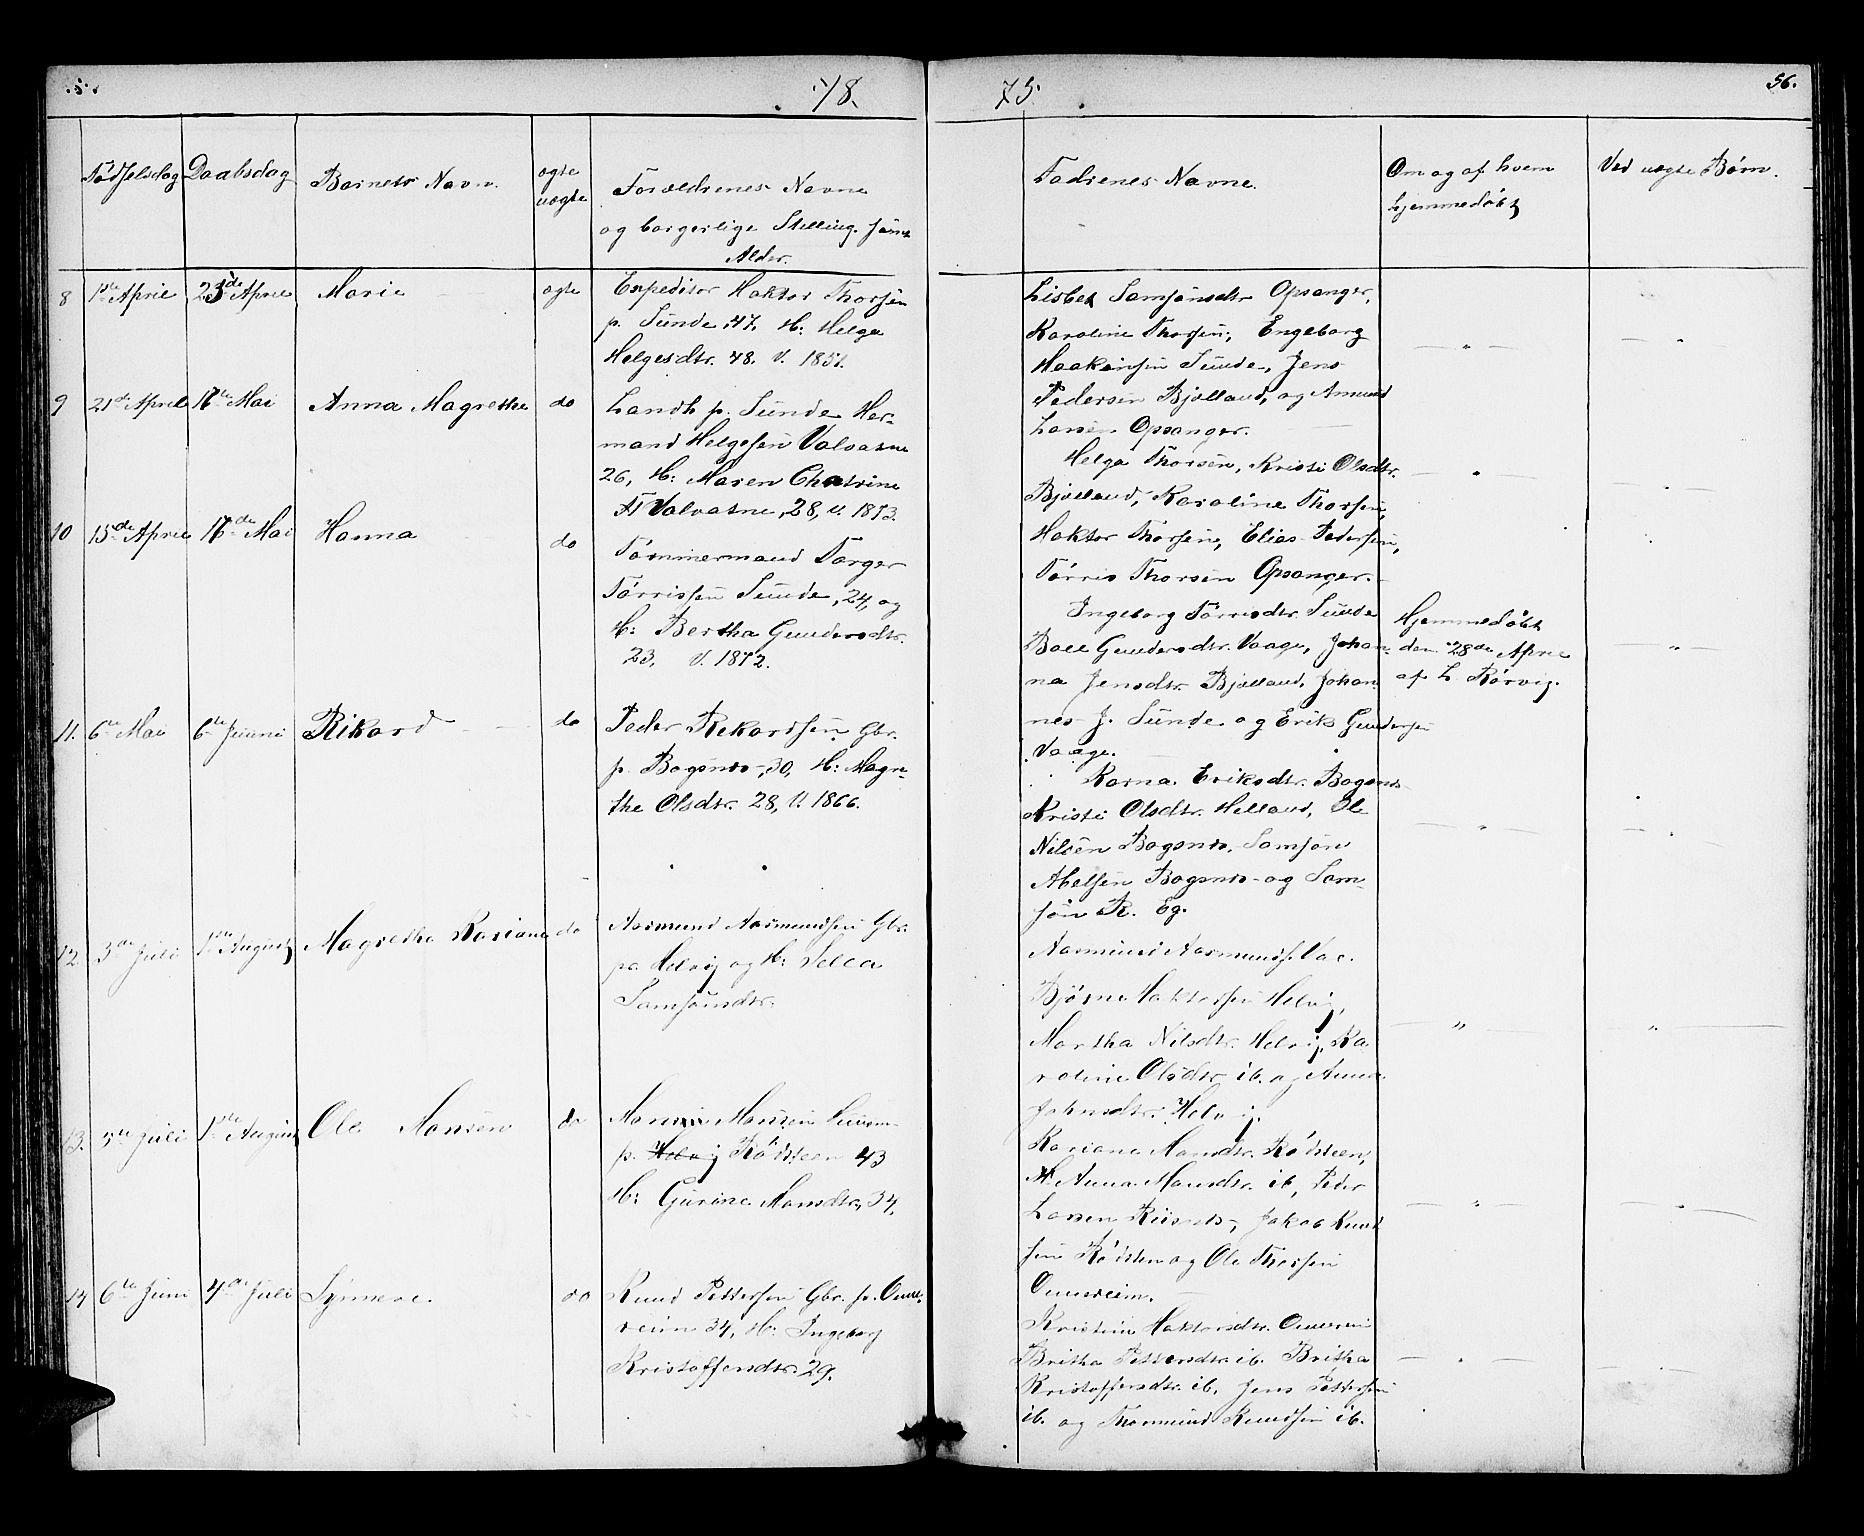 18. 75. 56.
Fødselsdag Daabsdag Barnets Navn. ægte uægte Forældrenes Navne
og borgerlige Stilling. samt
Alder.
Fadrenes Navne.
Om og af hvem
hjemmedøbt
Ved uægte Børn.
8 1ste April 25de April Marie ægte Expeditør Haktor Thorsen
p. Sunde, 47, H: Helga
Helgesdtr. 48. V. 1851.
Lisbet Samsonsdtr Opsanger,
Karoline Thorsen, Engeborg
Haakensen Sunde, Jens
Pedersen Bjelland, og Amund
Larsen Opsanger.
9 21de April 16de Mai Anna Magrethe do Landh p. Sunde Her-
mand Helgesen Valvatne
26, H: Maren Chatrine
Valvatne, 28, V. 1873.
Helga Thorsen, Kristi Olsdtr.
Bjelland, Karoline Thorsen,
Haktor Thorsen, Elias Pedersen,
Tørris Thorsen Opsanger.
10 15de April 16de Mai Hanna do Tømmermand Torger
Tørrissen Sunde, 24, og
H: Bertha Gundersdtr.
23. V. 1872.
Ingeborg Tørresdtr. Sunde
Boel Gundersdtr. Vaage, Johan-
na Jensdtr. Bjelland, Johan-
nes J. Sunde og Erik Gundersen
Vaage.
Hjemmedøbt
den 28de April
af L. Rørvig.
11. 6te Mai 6te Juni Rikard do Peder Rekardsen Gbr.
p. Bogsnes, 30, H: Magre-
the Olsdtr. 28, V. 1866.
Karna Eriksdtr. Bogsnes
Kristi Olsdtr. Helland, Ole
Nilsen Bogsnes, Samson
Abelsen Bogsnes og Sam-
son R. Eg.
12 3die Juli 1ste August Magretha Kariana do Aasmund Aasmundsen Gbr.
pa Helvig og H: Selea
Samsonsdtr.
Aasmund Aasmunds.
Bjørne Haktorsen Helvig,
Martha Nilsdtr. Helvig, Ka
roline Olsdtr ib. og Anna
Johnsdtr. Helvig.
13. 5te Juli 1ste August Ole Monsen do Mons Monsen
p. Helvig Rødsteen 43
H: Gurina Monsdtr, 34,
Kariana Monsdtr. Rødsteen,
Anna Monsdtr. ib, Peder
Larsen, Jakob Knud
sen Rødsten og Ole Thorsen
Omvreim.
14 6te Juni 4de Juli Synneve. do Knud Pettersen Gbr. p. Omv-
reim 34, H: Ingeborg
Kristoffersdtr. 29.
Kristine Haktorsdtr. Omvreim
Britha Pettersdtr. ib. Britha
Kristoffersdtr. ib, Jens Pettersen
ib. og Thormund Knudsen ib.